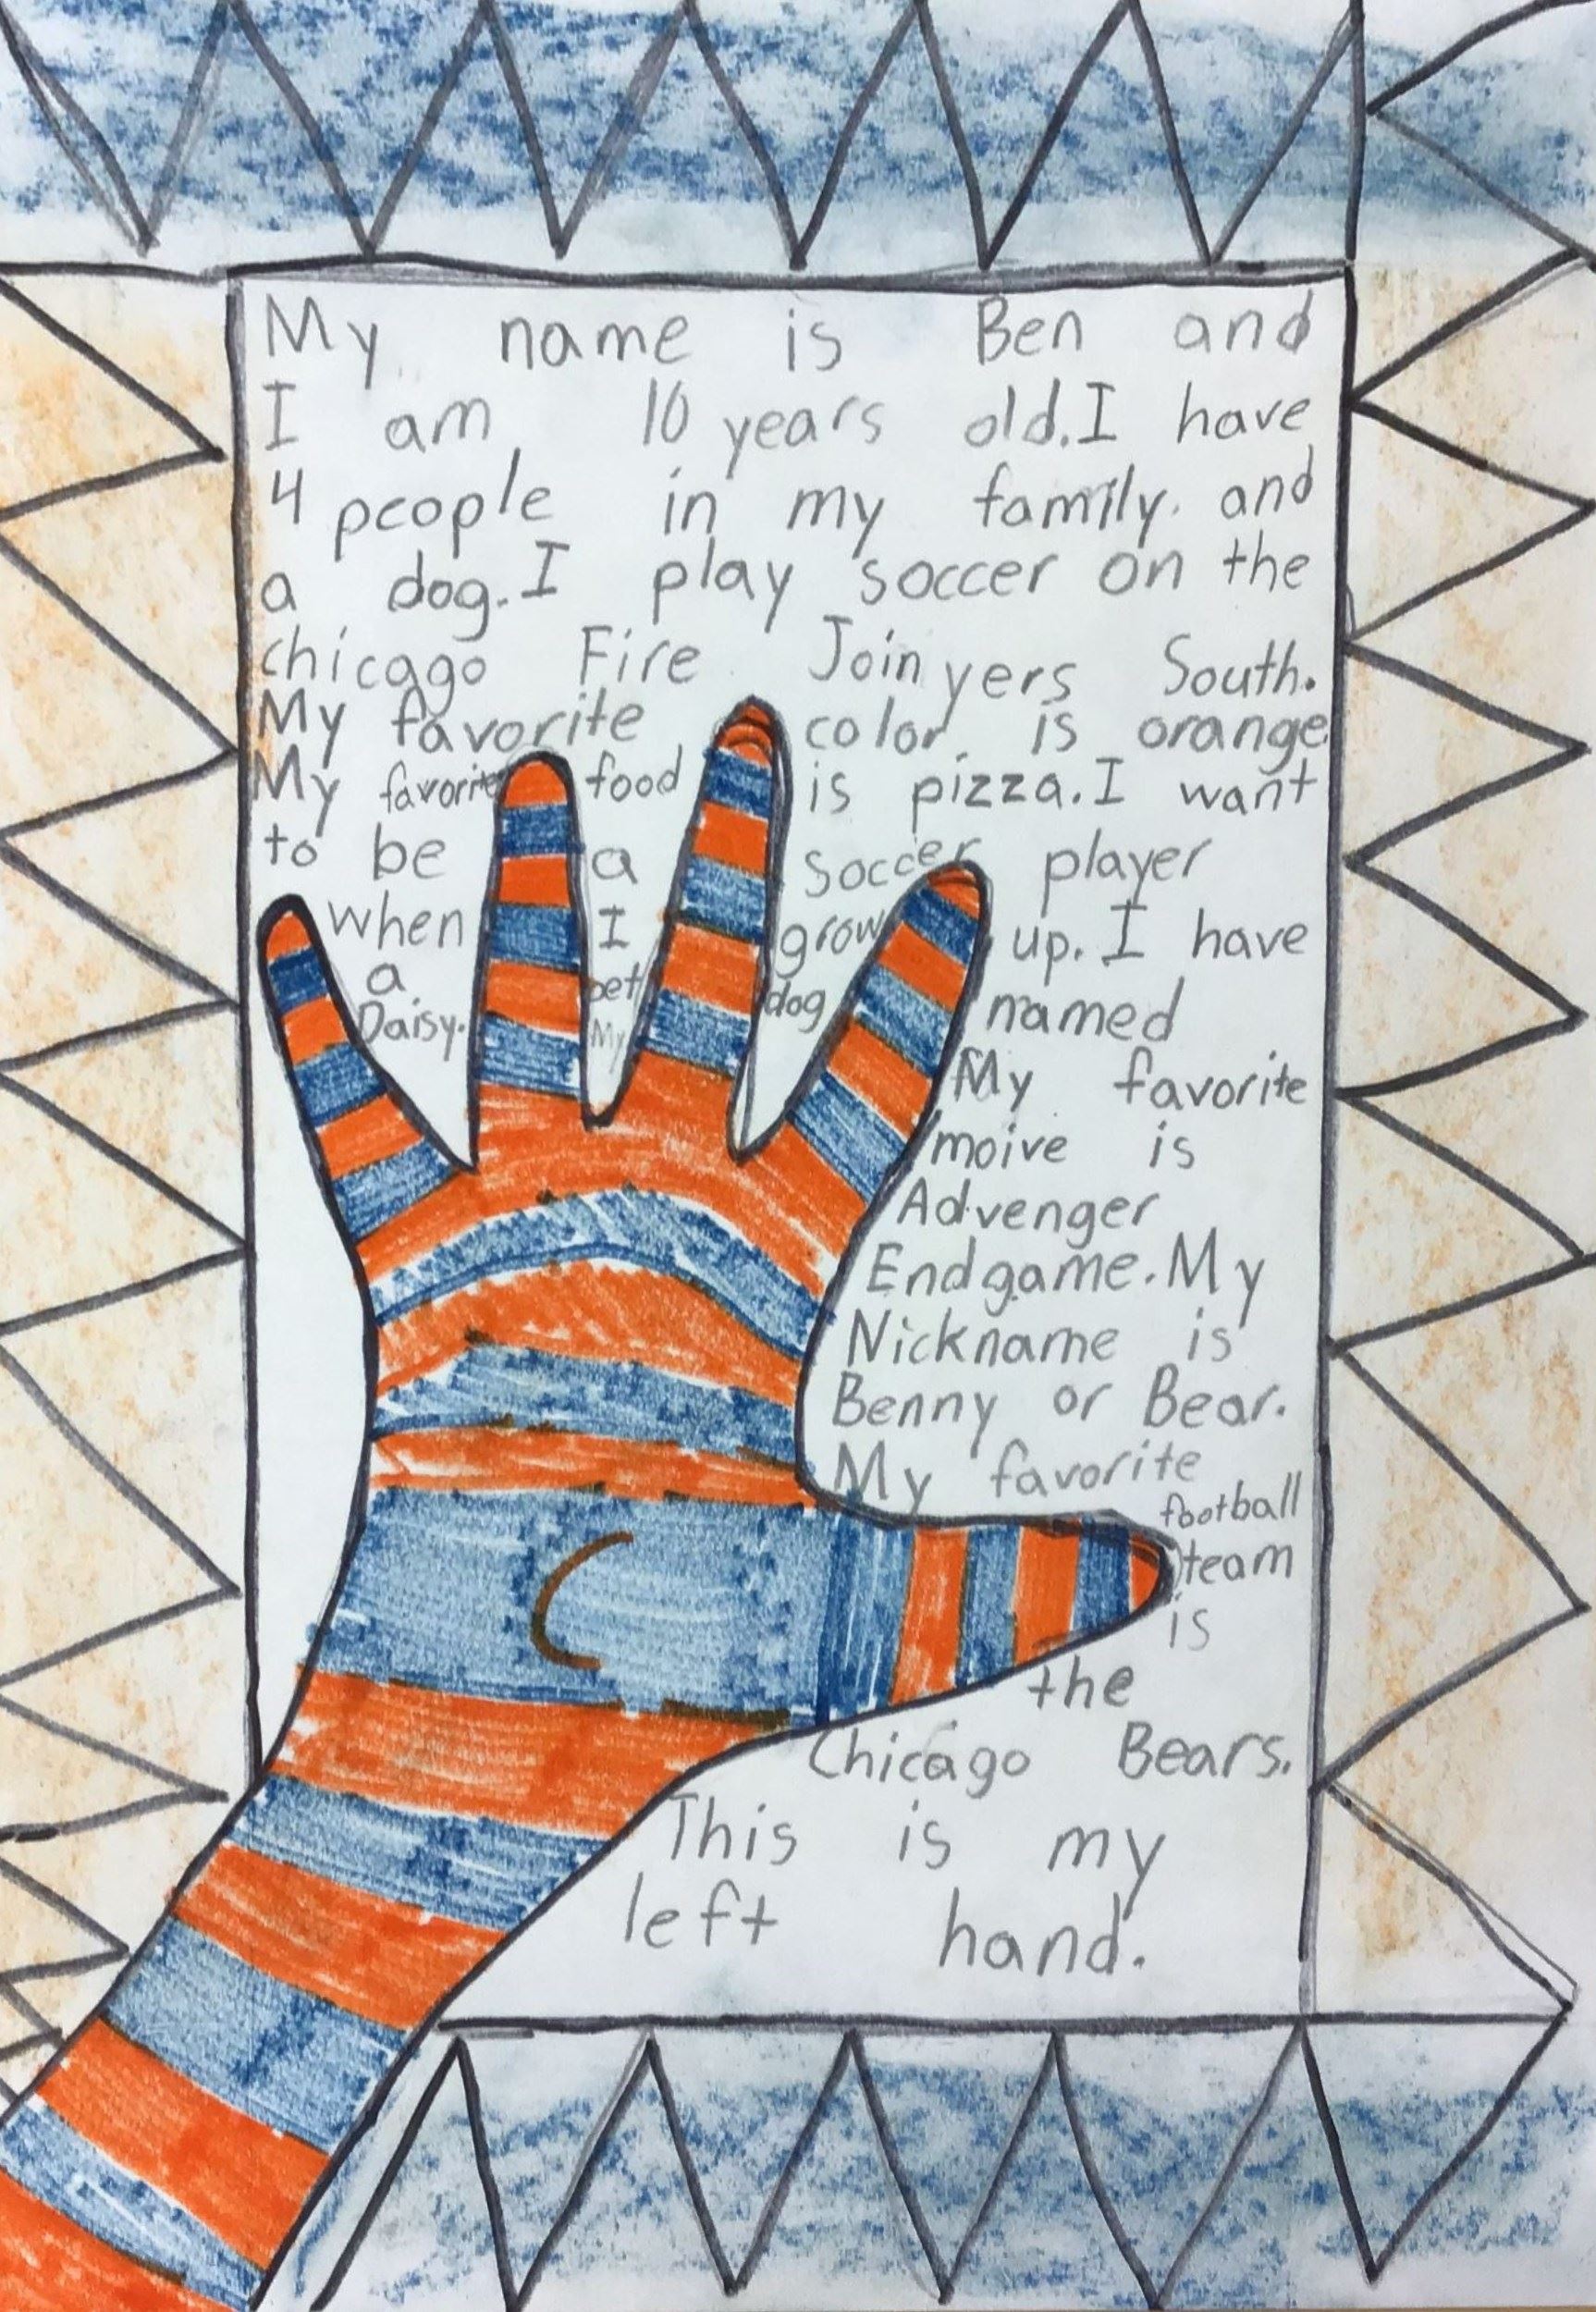 My name is Ben and
I am 10 years old. I have
4 people in my family. and
a dog. I play soccer on the
chicago Fire Join yers South.
My favorite color is orange
My favorite food is pizza. I want
to be a soccer player
when I grow up. I have
a pet dog named
Daisy. My
My favorite
moive is
Advenger
Endgame. My
Nickname is
Benny or Bear.
My favorite
football
team
is
the
Chicago Bears.
This is my
left hand.